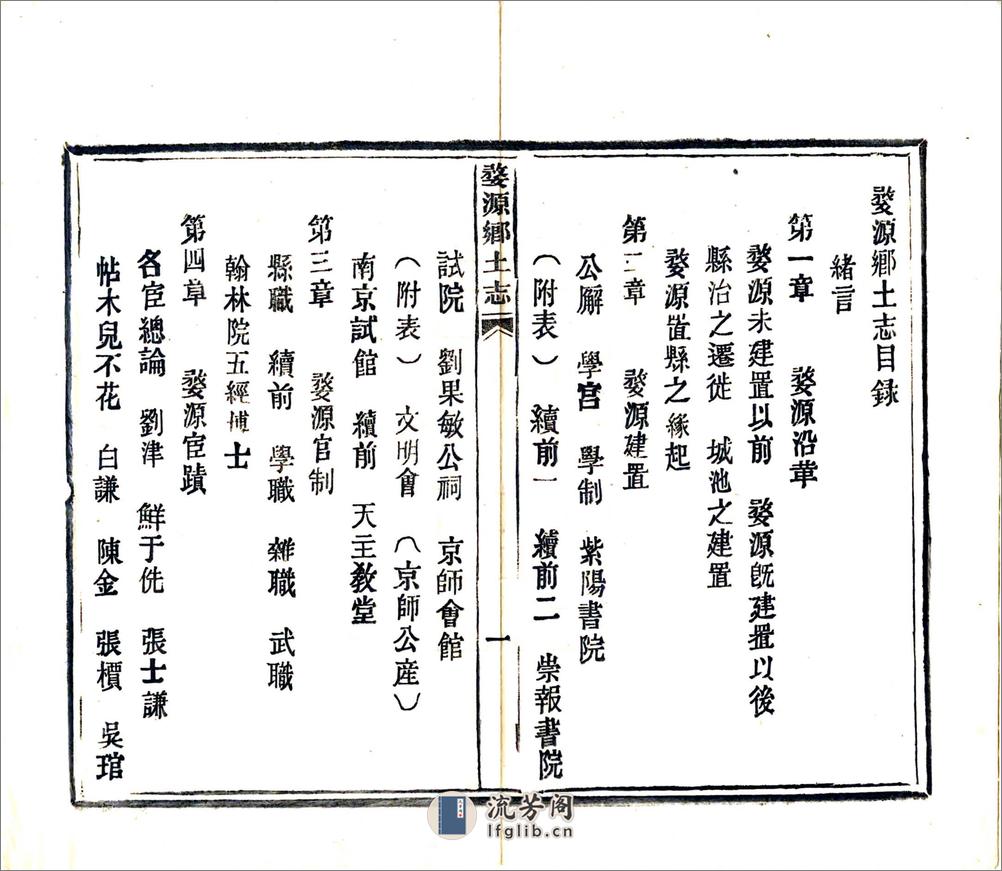 婺源鄉土志目録
緒言
第一章 婺源沿革
婺源未建置以前 婺源旣建置以後
縣治之遷徙 城池之建置
婺源置縣之緣起
第二章 婺源建置
公廨 學宫 學制 紫陽書院
(附表) 續前一 續前二 崇報書院
婺源鄉土志 一
試院 劉果敏公祠 京師會館
(附表) 文明會 (京師公産)
南京試館 續前 天主教堂
第三章 婺源官制
縣職 續前 學職 雜職 武職
翰林院五經博士
第四章 婺源宦蹟
名宦總論 劉津 鮮于侁 張士謙
帖木兒不花 白謙 陳金 張檟 吳琯
流芳阁
lfglib.cn